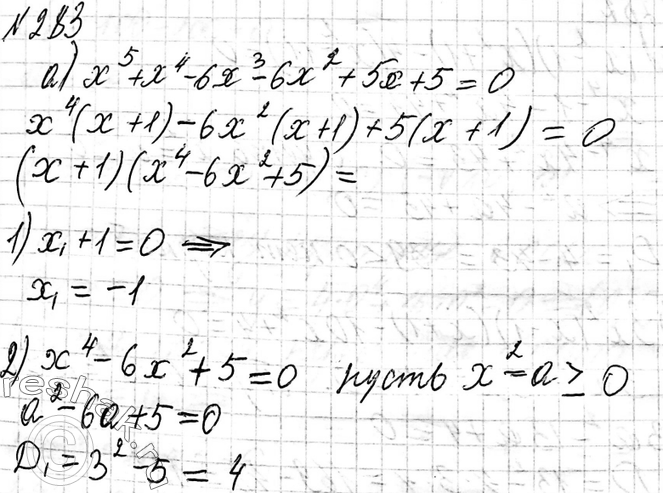 №283
а) x⁵+x⁴-6x³-6x²+5x+5=0
x⁴(x+1)-6x²(x+1)+5(x+1)=0
(x+1)(x⁴-6x²+5)=
1) x₁+1=0 ⇒
x₁=-1
2) x⁴-6x²+5=0 пусть x²=a≥0
a²-6a+5=0
D₁=3²-5=4